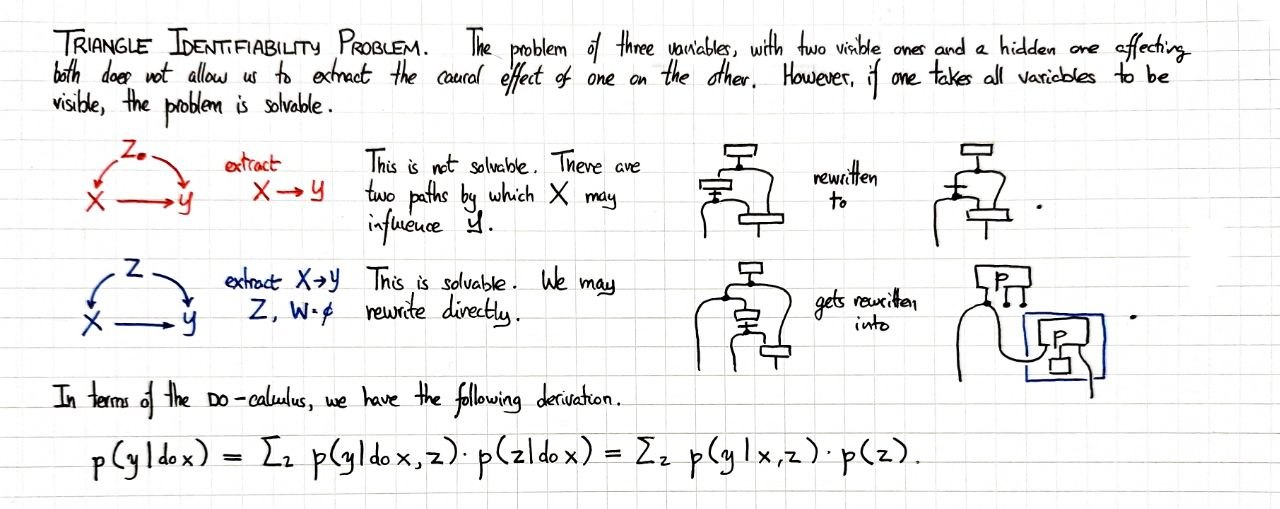 TRIANGLE IDENTIFIABILITY PROBLEM. The problem of three variables, with two visible ones and a hidden one affecting
both does not allow us to extract the causal effect of one on the other. However, if one takes all variables to be
visible, the problem is solvable.
Z
X → y
extract
X → y
This is not solvable. There are
two paths by which X may
influence y.
rewritten
to
.
Z
X → y
extract X→y
Z, W=ϕ
This is solvable. We may
rewrite directly.
gets rewritten
into
P
P
.
In terms of the DO-calculus, we have the following derivation.
p(y|do x) = Σz p(y|do x, z) · p(z|do x) = Σz p(y|x,z) · p(z).